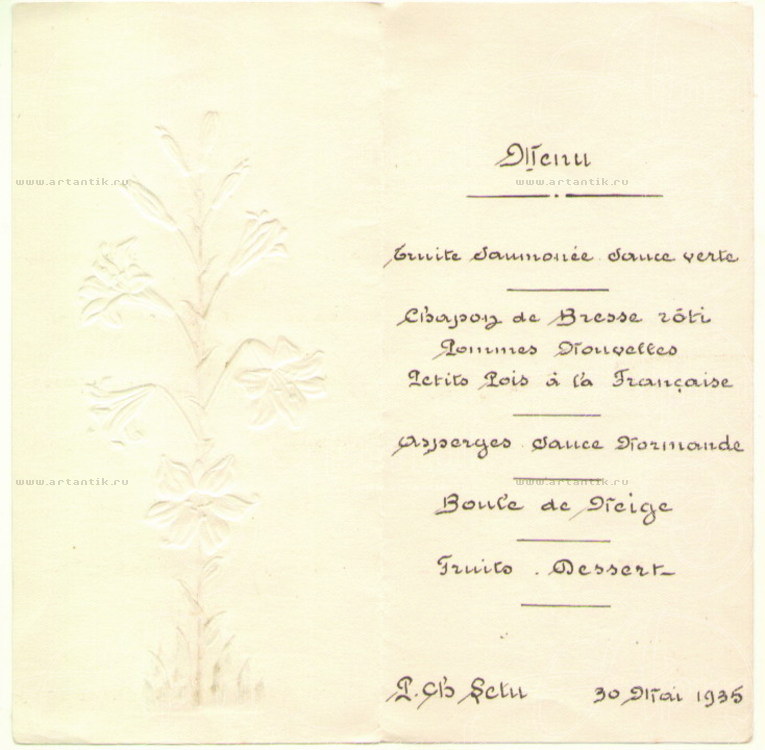 Menu
www.artantik.ru www.artantik.ru
Truite Saumonée Sauce verte
Chapon de Bresse rôti
Pommes Nouvelles
Petits Pois à la Française
Asperges Sauce Normande
www.artantik.ru www.artantik.ru
Boule de Neige
Fruits . Dessert
P. Ch 30 Mai 1935